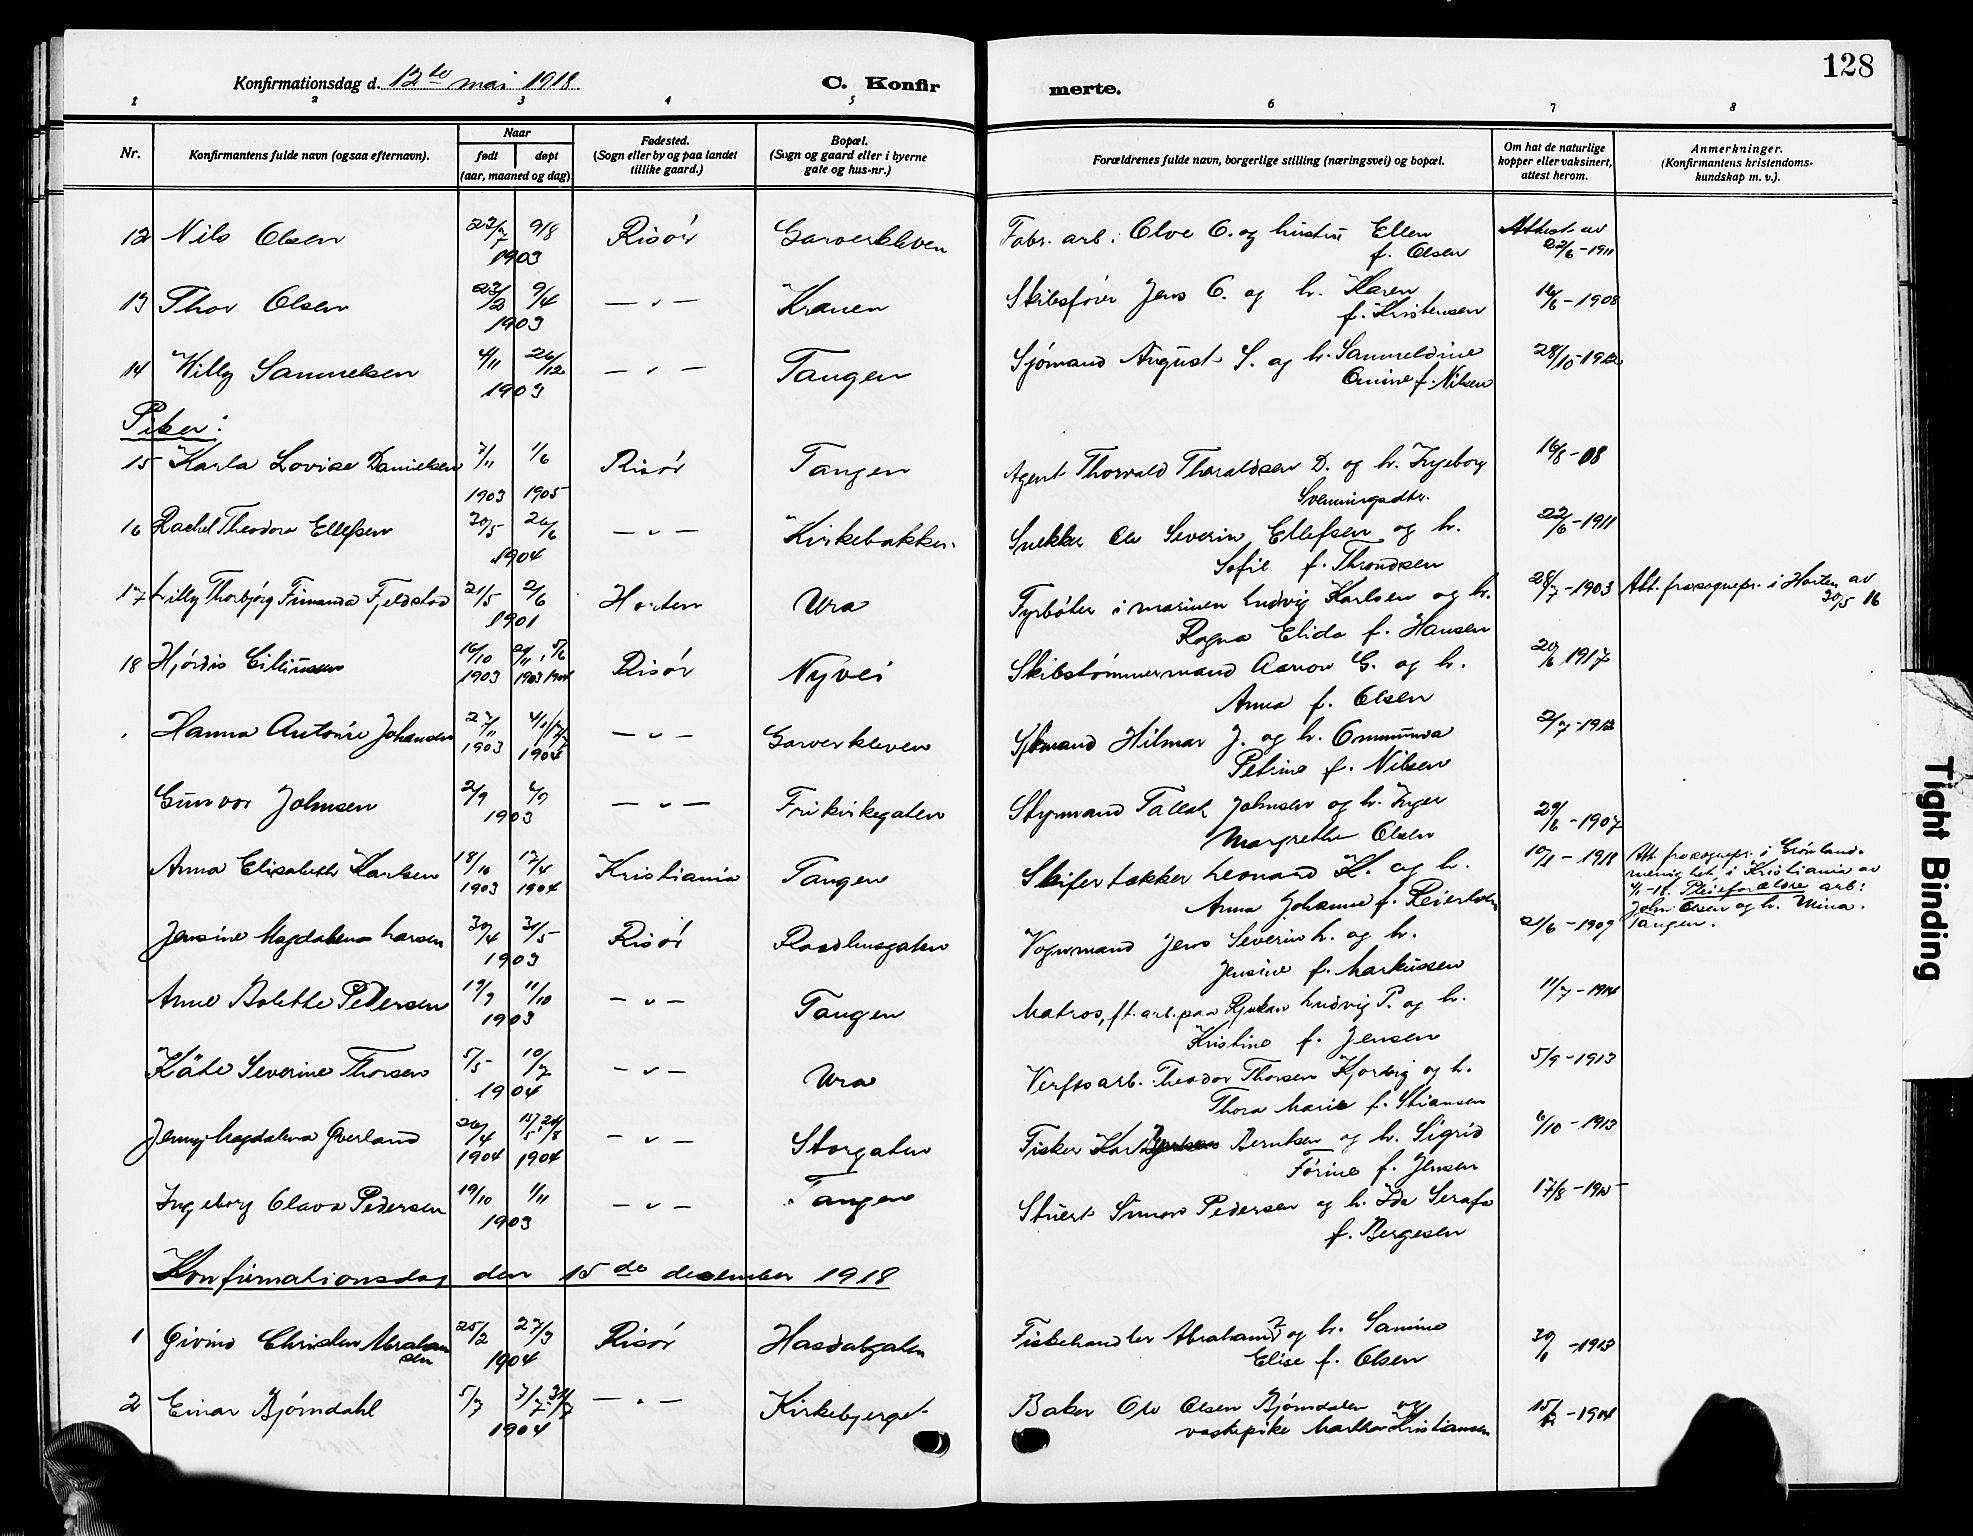 128
Konfirmationsdag d. 12te mai 1918
C. Konfirmerte.
1 2 3 4 5 6 7 8
Nr.
Konfirmantens fulde navn (ogsaa efternavn).
Naar
født døpt
(aar, maaned og dag)
Fødested.
(Sogn eller by og paa landet
tillike gaard.)
Bopæl.
(Sogn og gaard eller i byerne
gate og hus-nr.)
Forældrenes fulde navn, borgerlige stilling (næringsvei) og bopæl.
Om hat de naturlige
kopper eller vaksinert,
attest herom.
Anmerkninger.
(Konfirmantens kristendoms-
kundskap m. v.).
12 Nils Olsen 22/7 9/8 Risør Garverkleven Fabr. arb. Olve O. og hustru Ellen Attest av
1903 f. Olsen 22/6-1911
13 Thor Olsen 23/2 9/4 — " — Kranen Skibsfører Jens O. og h. Karen 16/6-1908
1903 f. Kristensen
14 Willy Samuelsen 4/11 26/12 — " — Tangen Sjømand August S. og h. Sammeldine 28/10-1912
1903 Omine f. Nilsen
Piker:
15 Karla Lovise Danielsen 7/11 1/6 Risør Tangen Agent Thorvald Thoraldsen D. og h. Ingeborg 16/8-08
1903 1905 Svenningsdtr.
16 Rachel Theodora Ellefsen 30/5 26/6 — " — Kirkebakken Snekker Ole Severin Ellefsen og h. 22/6-1911
1904 Sofie f. Throndsen
17 Lilly Thorbjørg Fimanda Fjeldstad 21/5 2/6 Horten Ura Fyrbøter i marinen Ludvig Karlsen og h. 28/7-1903 Att. fra sognepr. i Horten av
1901 Ragna Elida f. Hansen 30/5 16
18 Hjørdis Eiliussen 16/10 5/6 Risør Nyvei Skibstømmermand Aanon E. og h. 20/6 1917
1903 1903 1904 Anna f. Olsen
Hanna Antonie Johansen 27/11 — " — Garverkleven Sjømand Hilmar J. og h. Ommunda 2/7-1912
1903 1904 Petrine f. Nilsen
Gunvor Johnsen 2/9 4/9 — " — Frikirkegaten Styrmand Tallak Johnsen og h. Inger
1903 Margrethe Olsen 29/6-1907
Anna Elisabeth Karlsen 18/10 17/4 Kristiania Tangen Skifertækker Leonard K. og h. 1918 Att. fra sognepr. i Grønlands
1903 1904 Anna Johanne f. menighet i Kristiania av
Pleieforældre arb:
John Olsen og h. Mina.
Tangen.
Jensine Magdalena Larsen 30/4 31/5 Risør Raadhusgaten Vognmand Jens Severin L. og h. 21/6-1909
1903 Jensine f. Markussen
Anne Bolette Pedersen 19/9 11/10 — " — Tangen Matros, f.t. arb. paa Rjukan Ludvig P. og h. 11/7-1914
1903 Kristine f. Jensen
Käte Severine Thorsen 5/5 10/7 — " — Ura Verftsarb. Theodor Thorsen Kjørvig og h. 5/9-1913
1904 Thora Marie f. Stiansen
Jenny Magdalena Øverland 26/4 — " — Storgaten Fisker Karl Berntsen og h. Sigrid 6/10-1913
1904 1904 Tørine f. Jensen
Ingeborg Olava Pedersen 19/10 1/11 — " — Tangen Stuert Simon Pedersen og h. Ida Serafa 17/8-1915
1903 f. Bergesen
Konfirmationsdag den 15de desember 1918
1 Øivind Christen Abraham 25/2 27/3 Risør Hasdalgaten Fiskehandler Abraham og h. Samine 1913
sen 1904 Elise f. Olsen
2 Einar Bjørndahl 5/7 — " — Kirkebjerget Baker Ole Olsen Bjørndalen og 1904
1904 vaskepike Marthea Kristiansen
Tight Binding